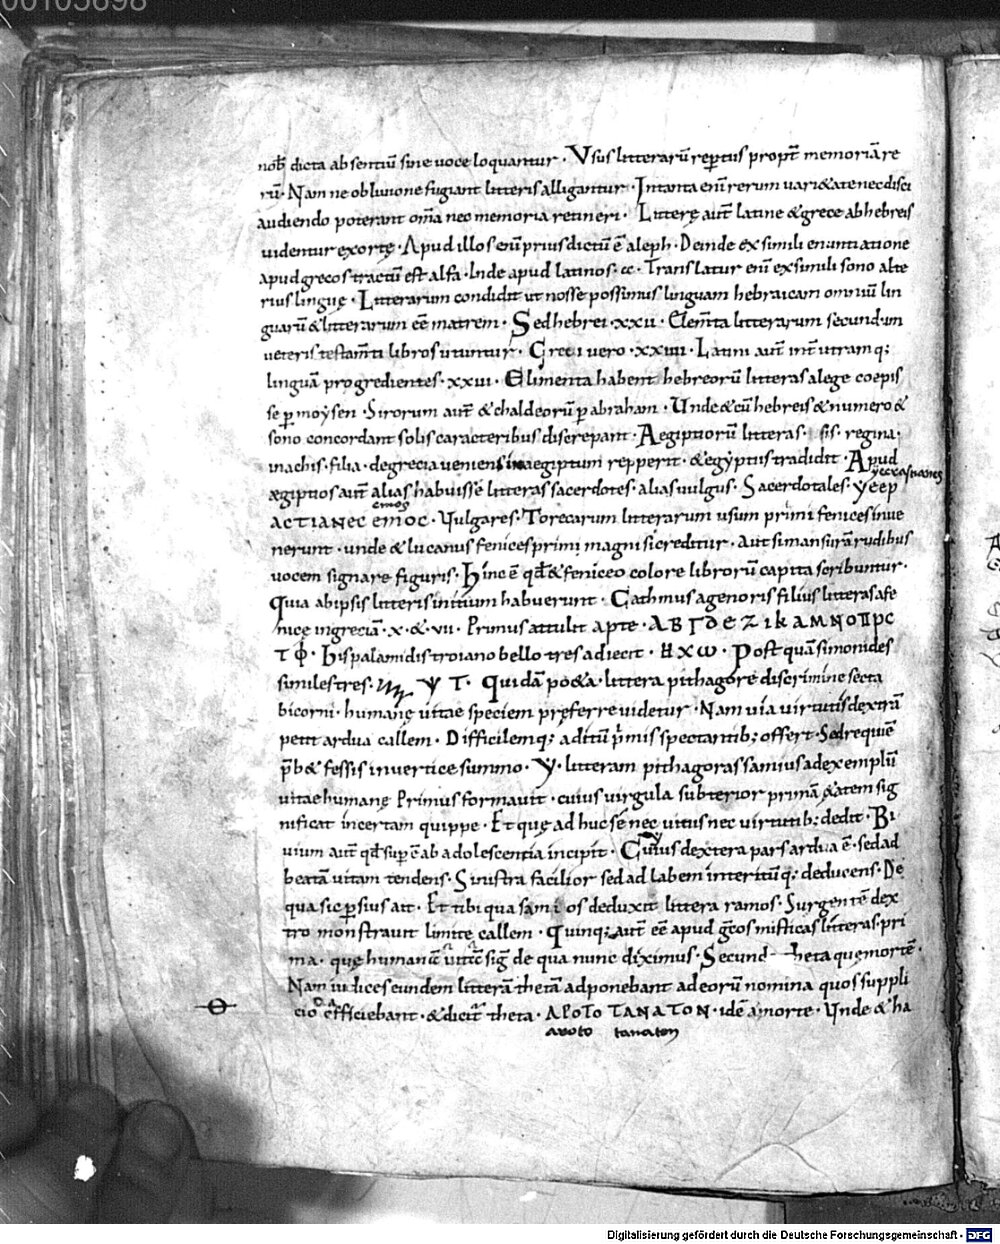 00105698
nob̄ dicta absentiū sine voce loquantur · Vsus litterarū reptus propt̄ memoriā re
rū · Nam ne obliuione fugiant litteris alligantur · In tanta enī rerum uari&ate nec disci
audiendo poterant om̄a nec memoria retineri · Litterę aut̄ latine & grece ab hebreis
uidentur exortę · Apud illos enī prius dictū ē aleph · Deinde ex simili enuntiatione
apud grecos tractū est alfa · Inde apud latinos · a · Translatur enī ex simili sono alte
rius linguę · Litterarum condidit ut nosse possimus linguam hebraicam omniū lin
guarū & litterarum eē matrem · Sed hebrei · xxii · Elem̄ta litterarum secundum
ueteris testam̄ti libros utuntur · Greci uero · xxiiii · Latini aut̄ int̄ utramq;
linguā progredientes · xxvi · Elimenta habent hebreorū litteras a lege coepis
se p moysen · Sirorum aut̄ & chaldeorū p abraham · Unde & cū hebreis & numero &
sono concordant solis caracteribus discrepant · Aegiptiorū litteras · isis · regina ·
inachis · filia · de grecia ueniens in aegiptum repperit · & egyptus tradidit · Apud
ægiptios aut̄ alias habuisse litteras sacerdotes · alias uulgus · Sacerdotales · ycep
emos
ACTIANEC emoc · Uulgares · Torecarum litterarum usum primi fenices inue
nerunt · unde & lucanus fenices primi magnis icreditur · aut si mansurā rudibus
vocem signare figuris · Hinc ē qd̄ & feniceo colore librorū capita scribuntur ·
Quia ab ipsis litteris initium habuerunt · Cathmus agenoris filius litteras a fe
nice in greciā · x · & · vii · Primus attulit apte · ΑΒΓΔΕΖΙΚΛΜΝΟΠΡC
Τ Φ · His palamidis troiano bello tres adiecit · Η Χ ω · Post quā simonides
similes tres · Ψ T · Quidā po&a · littera pithagorę discrimine secta
bicorni · humanę uitae speciem pręferre uidetur · Nam uia uirtutis dextrā
petit ardua callem · Difficilemq; aditū p̄mis spectantib; offert · Sed requiē
p̄b& fessis in uertice summo · Y · litteram pithagoras samius ad exemplū
uitae humanę Primus formauit · cuius virgula subterior primā ętatem sig
nificat incertam quippe · Et quę ad huc sē nec uitiis nec virtutib; dedit · Bi
vium aut̄ qd̄ sup ē ab adolescentia incipit · Cuius dextera pars ardua ē · sed ad
beatā uitam tendens · Sinistra facilior sed ad labem interitūq; deducens · De
qua sic psius ait · Et tibi qua sami os deduxit littera ramos · Surgentē dex
tro monstrauit limite callem · Quinq; aut̄ eē apud ḡcos misticas litteras · pri
ma · quę humanā uitā sig de qua nunc diximus · Secund theta quę mortē ·
Nam iudices eundem litterā thetā adponebant ad eorū nomina quos suppli
cio efficiebant · & dicit̄ theta · ΑΡΟΤΟ ΤΑΝΑΤΟΝ · idē a morte · Unde & ha
apoto tanaton
Digitalisierung gefördert durch die Deutsche Forschungsgemeinschaft · DFG